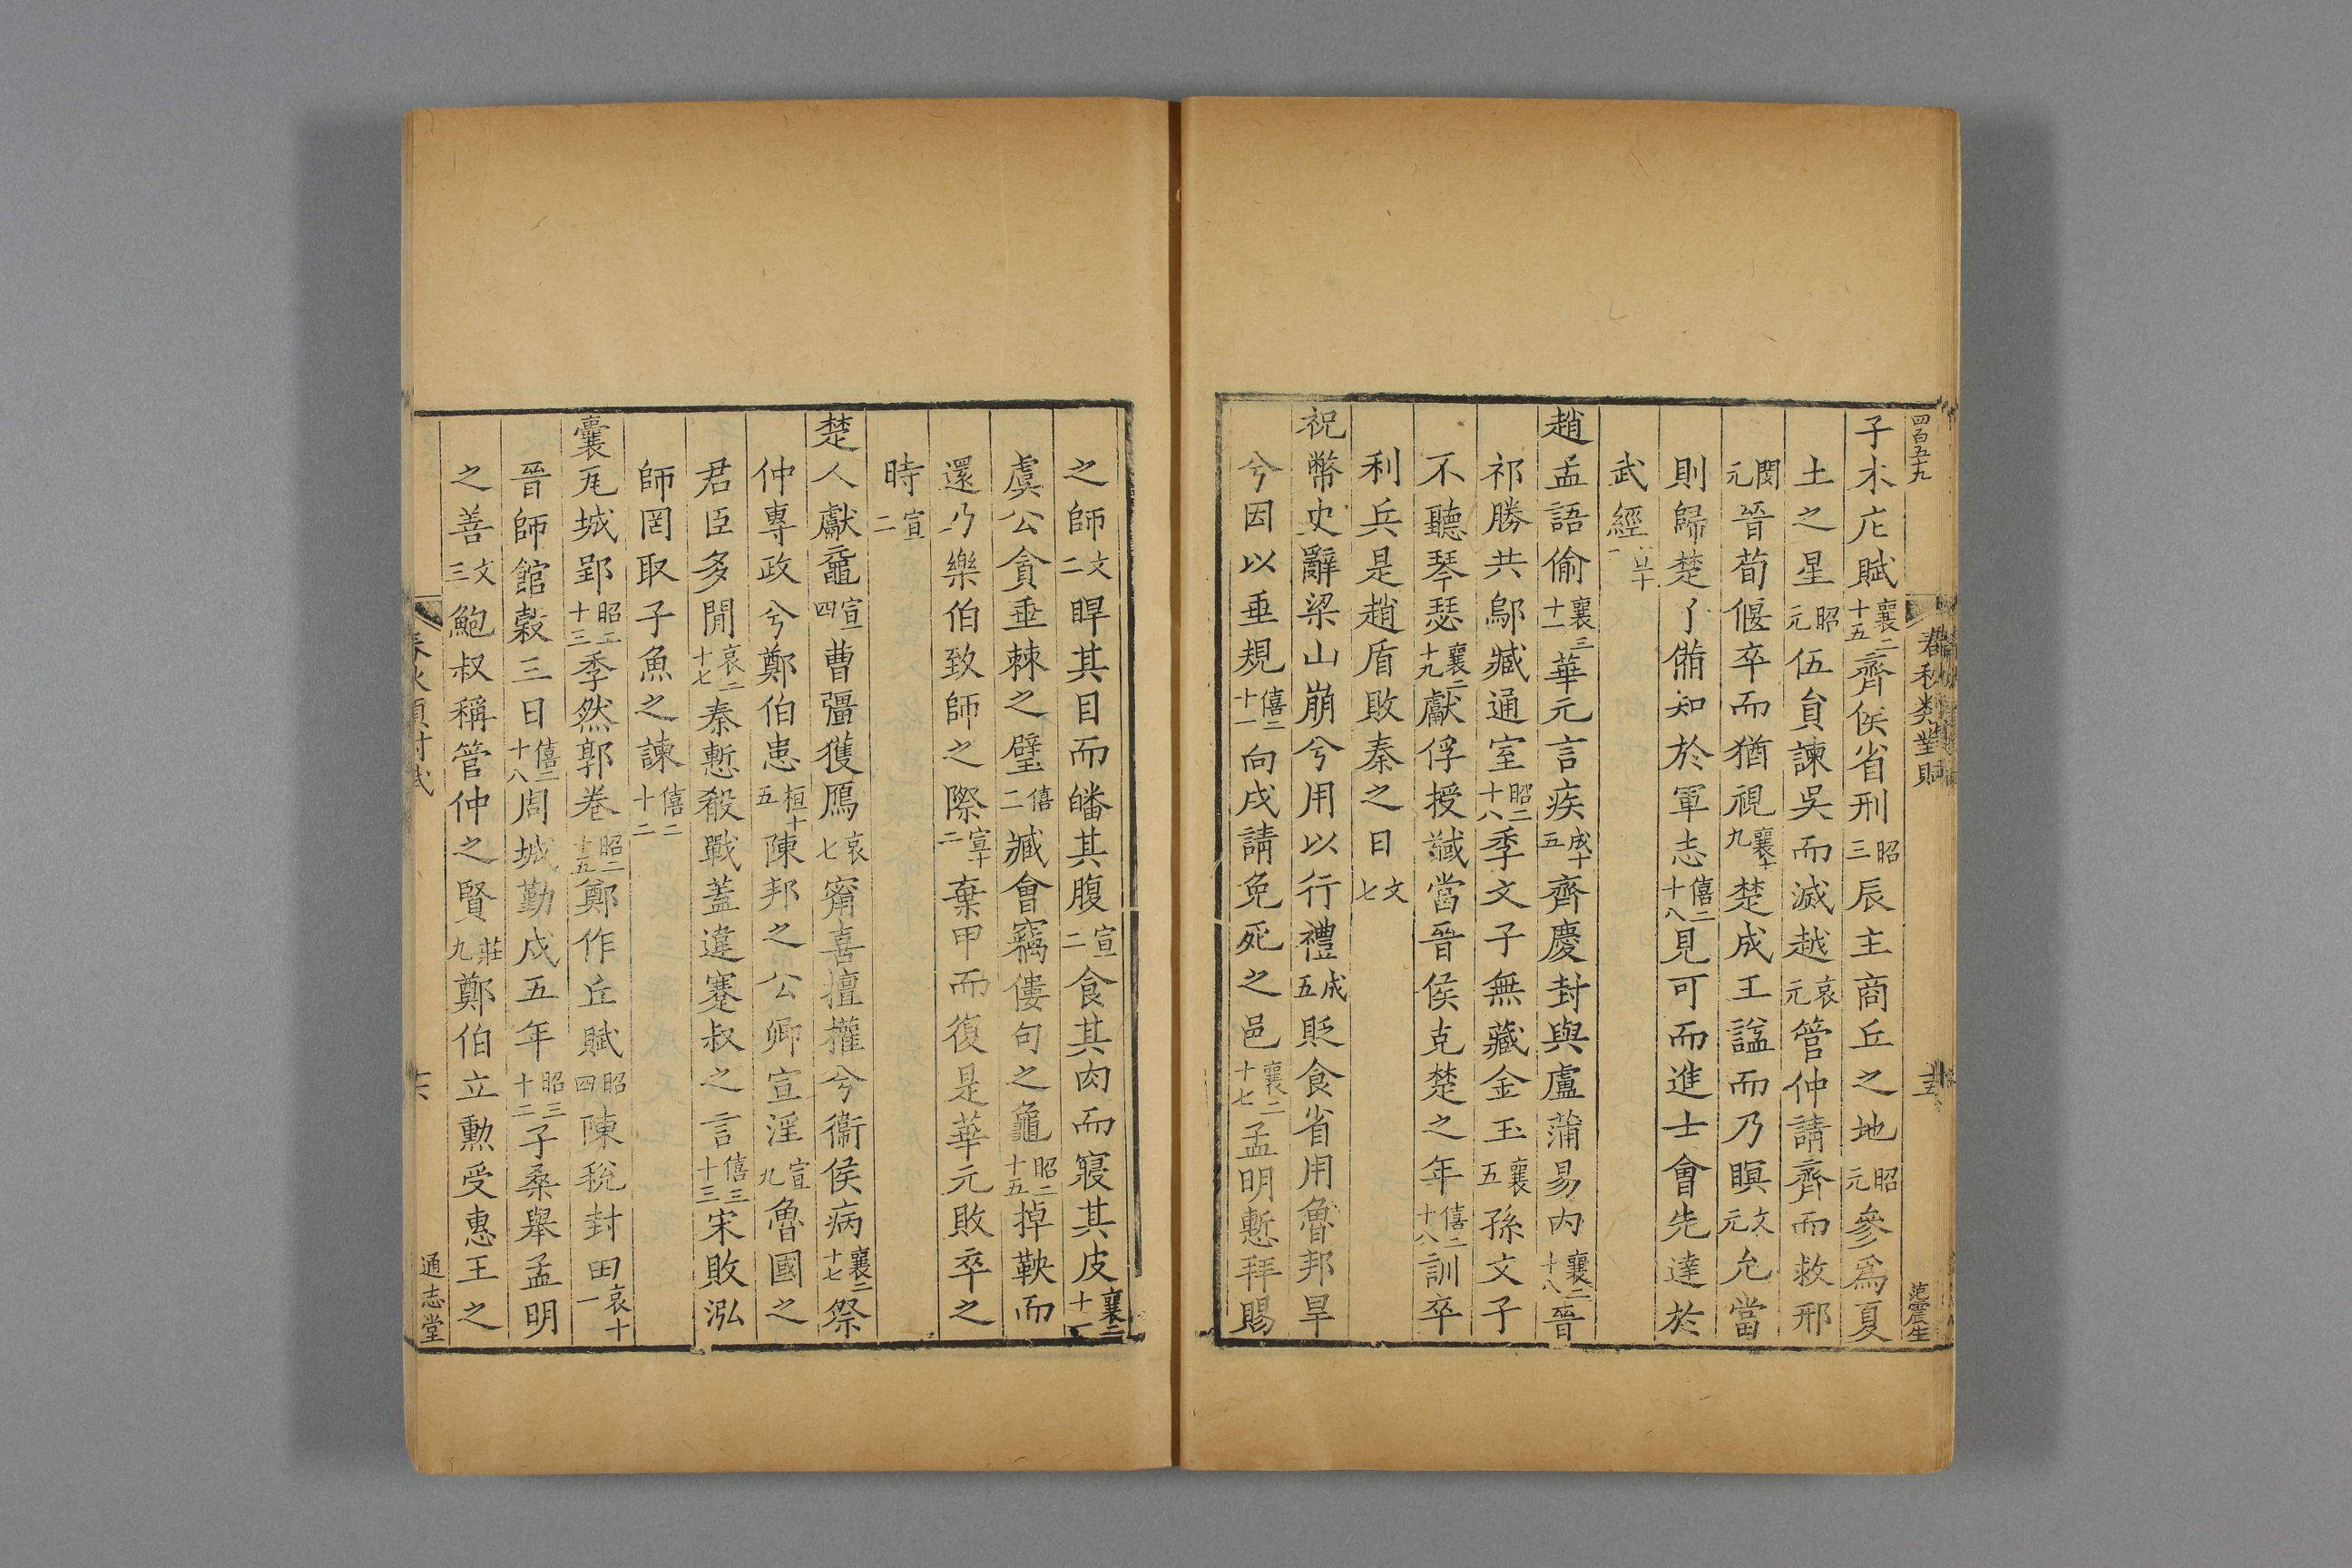 四百五十九
春秋類對賦
范震生
子木庀賦襄二十五齊侯省刑昭三辰主商丘之地昭元參爲夏
土之星昭元伍貟諫吳而滅越哀元管仲請齊而救邢
閔元晉荀偃卒而猶視襄十九楚成王諡而乃瞑文元允當
則歸楚子備知於軍志僖二十八見可而進士會先達於
武經
趙孟語偷襄三十一華元言疾成十五齊慶封與盧蒲易內襄二十八晉
祁勝共鄔臧通室昭二十八季文子無藏金玉襄五孫文子
不聽琴瑟襄二十九獻俘授馘當晉侯克楚之年僖二十八訓卒
利兵是趙盾敗秦之日文七
祝幣史辭梁山崩兮用以行禮成五貶食省用魯邦旱
兮因以垂規僖二十一向戌請免死之邑襄二十七孟明慙拜賜
之師文二睅其目而皤其腹宣二食其肉而寢其皮襄二十一
虞公貪垂棘之璧僖二臧會竊僂句之龜昭二十五掉鞅而
還乃樂伯致師之際宣十二棄甲而復是華元敗卒之
時宣二
楚人獻黿宣四曹彊獲鴈哀七甯喜擅權兮衞侯病襄二十七祭
仲專政兮鄭伯患桓十五陳邦之公卿宣淫宣九魯國之
君臣多閒哀二十七秦慙殽戰蓋違蹇叔之言僖三十三宋敗泓
師罔取子魚之諫僖二十二
囊瓦城郢昭二十三季然郭卷昭二十五鄭作丘賦昭四陳稅封田哀十一
晉師館榖三日僖二十八周城勤戍五年昭三十二子桑舉孟明
之善文三鮑叔稱管仲之賢莊九鄭伯立勲受惠王之
通志堂